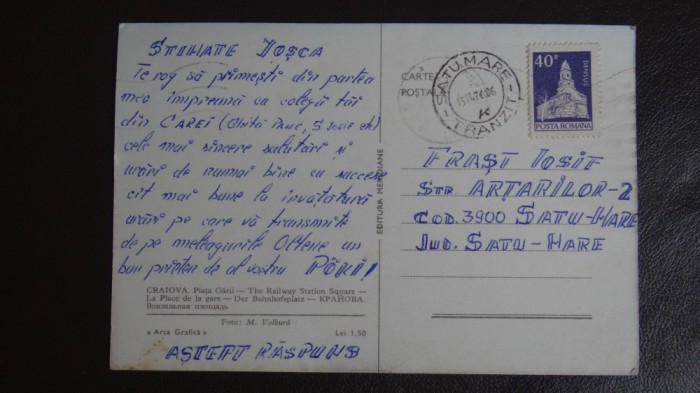 STIMATE IOȘCA
Te rog să primești din partea
mea împreună cu colegii tăi
din CAREI (Ghiță, S. Iosif etc)
cele mai sincere salutări și
urări de numai bine cu succese
cit mai bune la învățătură
urări pe care vă transmite
de pe meleagurile Oltene un
bun prieten de al vostru
CRAIOVA. Piața Gării — The Railway Station Square —
La Place de la gare — Der Bahnhofsplatz — КРАЙОВА.
Вокзальная площадь
Foto: M. Volbură
« Arta Grafică » Lei 1,50
AȘTEPT RĂSPUNS
EDITURA MERIDIANE
CARTE
POȘTALĂ
SATU MARE
- TRANZIT -
K
40B
DENSUȘ
POSTA ROMANA
FRAȘT IOSIF
STR ARȚARILOR-2
COD. 3900 SATU-MARE
JUD. SATU-MARE